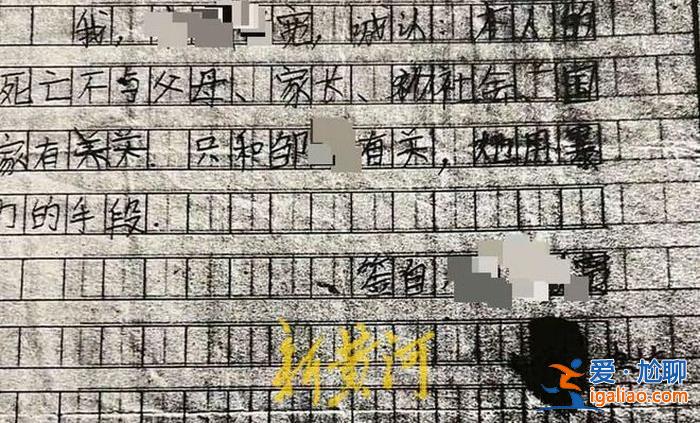 我，宽，诚认：本人的
死亡不与父母、家长、和社会、国
家有关关.只和邹有关，她用暴
力的手段.
签自，
新黄河
爱·尬聊
igaliao.com